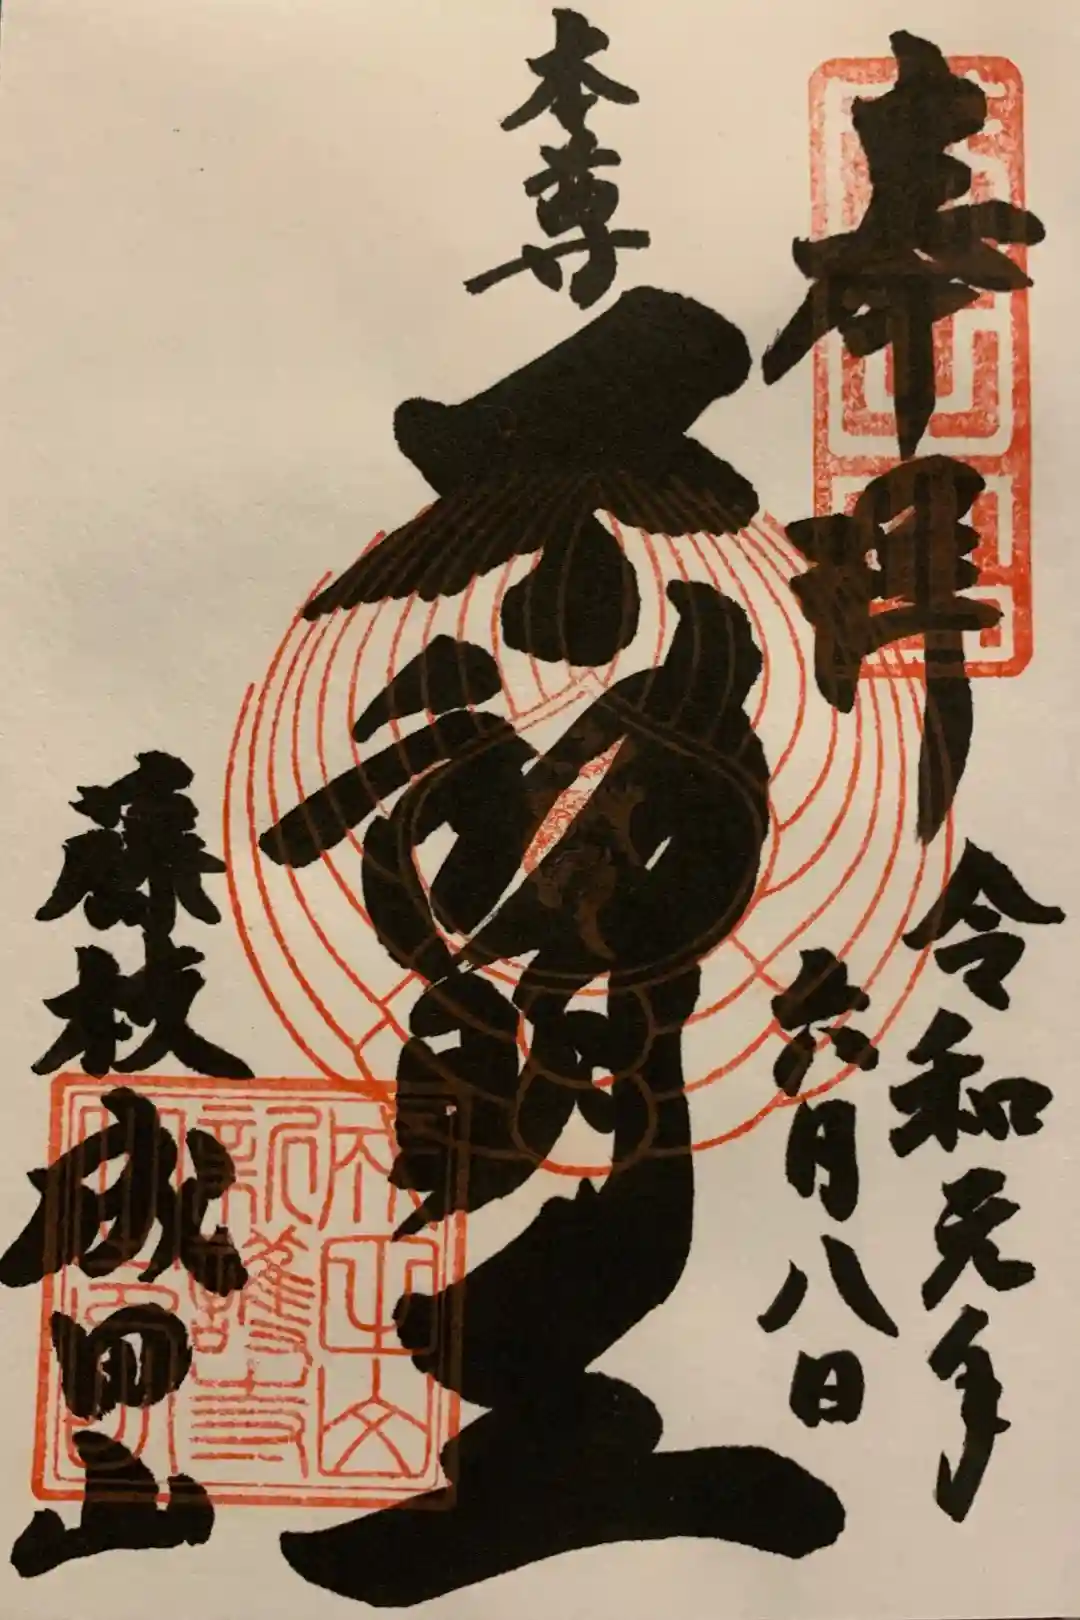 奉拝
令和元年
六月八日
本尊
不動明王
藤枝
成田山
新護寺